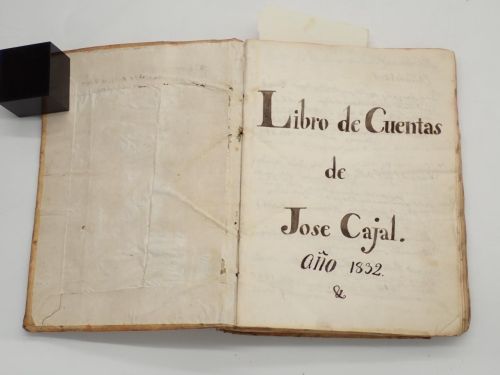 Libro de Cuentas
de
Jose Cajal.
año 1832.
&